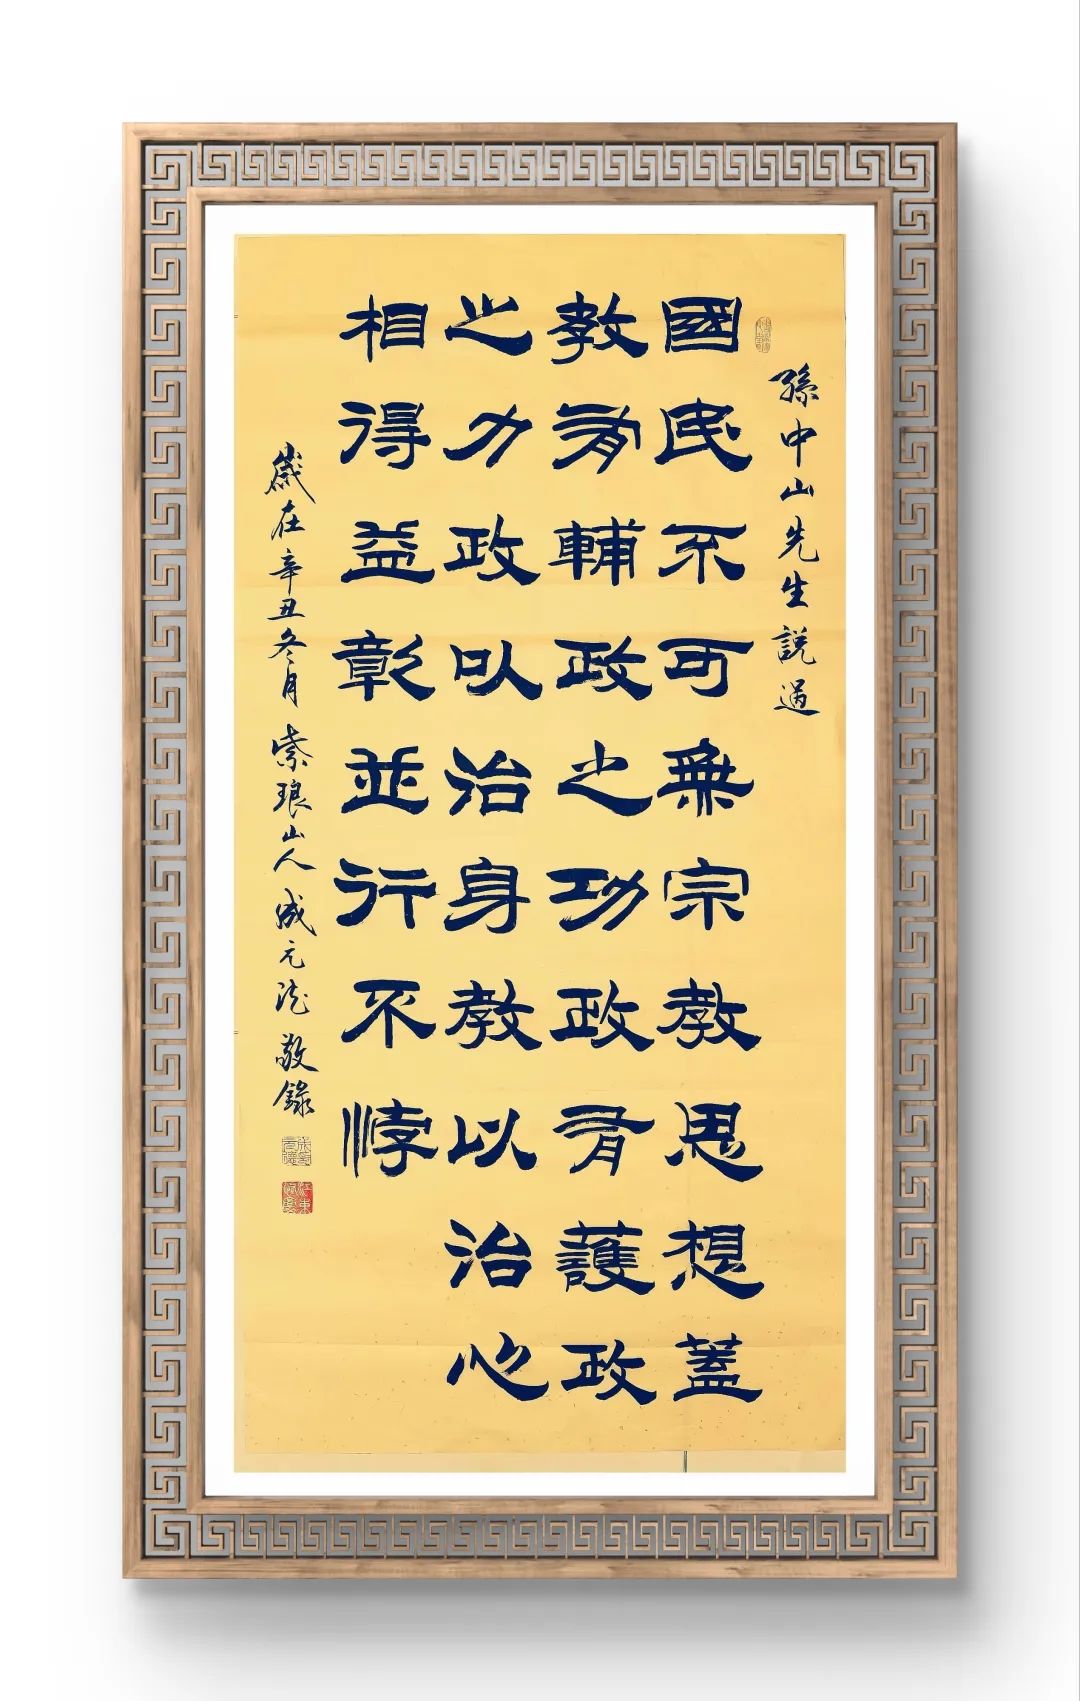 孫中山先生說過
國民不可無宗教思想蓋
教有輔政之功政有護政
之力政以治身教以治心
相得益彰並行不悖
歲在辛丑冬月紫琅山人成元敬錄